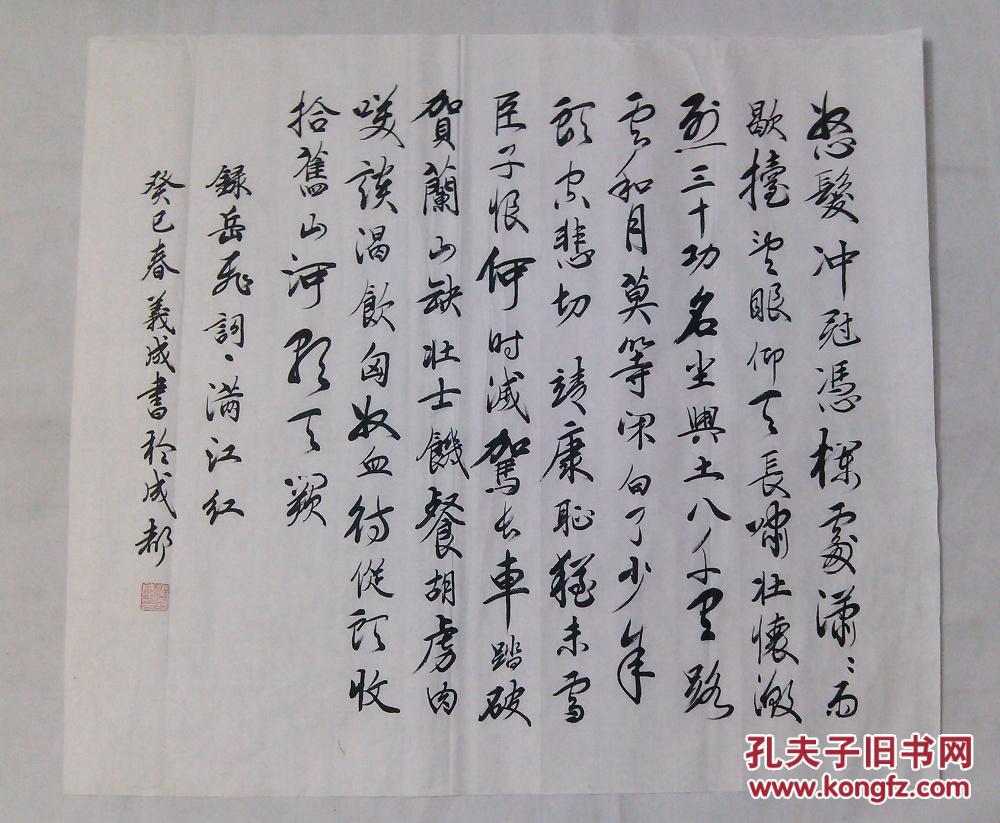 怒髮冲冠憑欄處瀟〻雨
歇擡望眼仰天長嘯壯懷激
烈三十功名尘與土八千里路
雲和月莫等闲白了少年
頭空悲切 靖康恥猶未雪
臣子恨何时滅駕长車踏破
賀蘭山缺壯士饑餐胡虜肉
咲談渴飲匈奴血待從頭收
拾舊山河朝天闕
録岳飛詞、满江红
癸巳春義成書於成都
孔夫子旧书网
WWW.KONGFZ.COM